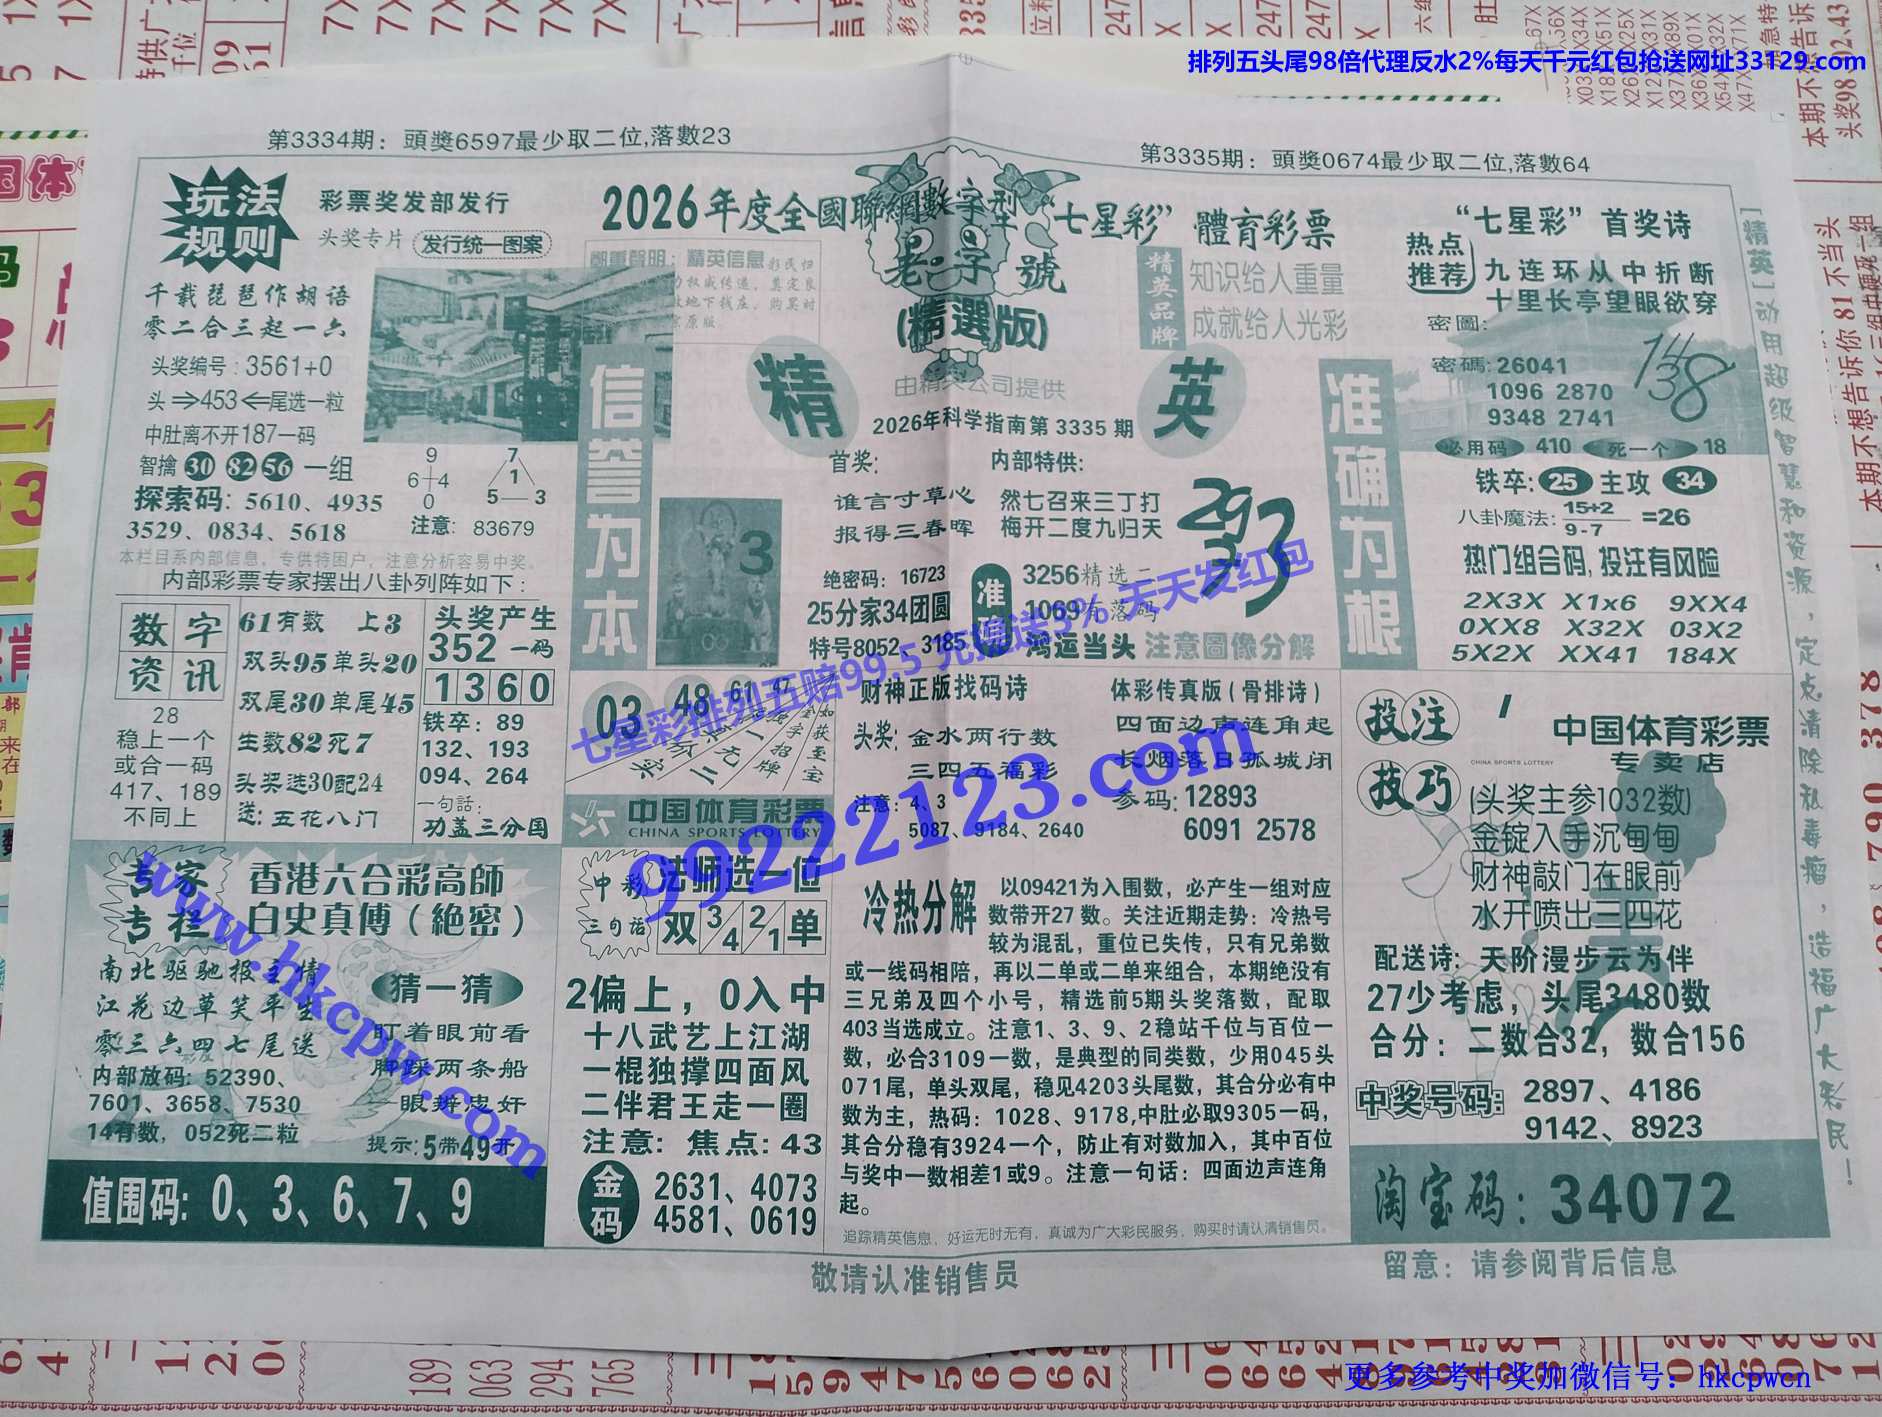 排列五头尾98倍代理反水2%每天千元红包抢送网址33129.com
第3334期：頭獎6597最少取二位,落數23
第3335期：頭獎0674最少取二位,落數64
玩法
规则
彩票奖发部发行
头奖专片 发行统一图案
千载琵琶作胡语
零二合三起一六
头奖编号：3561+0
头⇒453⇐尾选一粒
中肚离不开187一码
智擒 30 82 56 一组
探索码：5610、4935
3529、0834、5618
9
6+4
0
7
1
5—3
注意：83679
本栏目系内部信息，专供特困户，注意分析容易中奖。
内部彩票专家摆出八卦列阵如下：
数字
资讯
28
稳上一个
或合一码
417、189
不同上
61有数 上3
双头95单头20
双尾30单尾45
生数82死7
头奖选30配24
送：五花八门
头奖产生
352一码
1360
铁卒：89
132、193
094、264
一句話：
功盖三分国
专家
专栏
香港六合彩高師
白史真傅（絶密）
南北驱驰报主情
江花边草笑平生
零三六四七尾送
内部放码：52390、
7601、3658、7530
14有数，052死二粒
猜一猜
盯着眼前看
脚踩两条船
一眼辨忠奸
提示：5带49开
值围码：0、3、6、7、9
2026年度全國聯網數字型“七星彩”體育彩票
老字號
(精選版)
鄭重聲明：精英信息
由精英公司提供
精英品牌
知识给人重量
成就给人光彩
信誉为本
精
英
准确为根
2026年科学指南第3335期
首奖：
谁言寸草心
报得三春晖
内部特供：
然七召来三丁打
梅开二度九归天
293
3
绝密码：16723
25分家34团圆
特号8052、3185
准
3256精选二
1069有落码
鸿运当头 注意圖像分解
3
03
48
61
47
如获至宝
中国体育彩票
CHINA SPORTS LOTTERY
财神正版找码诗
头奖：金水两行数
三四五福彩
注意：4、3
5087、9184、2640
体彩传真版（骨排诗）
四面边声连角起
长烟落日孤城闭
参码：12893
6091 2578
中彩
三句话
法师选一位
双 3/4 2/1 单
2偏上，0入中
十八武艺上江湖
一棍独撑四面风
二伴君王走一圈
注意：焦点：43
金码
2631、4073
4581、0619
冷热分解
以09421为入围数，必产生一组对应
数带开27数。关注近期走势：冷热号
较为混乱，重位已失传，只有兄弟数
或一线码相陪，再以二单或二单来组合，本期绝没有
三兄弟及四个小号，精选前5期头奖落数，配取
403当选成立。注意1、3、9、2稳站千位与百位一
数，必合3109一数，是典型的同类数，少用045头
071尾，单头双尾，稳见4203头尾数，其合分必有中
数为主，热码：1028、9178,中肚必取9305一码，
其合分稳有3924一个，防止有对数加入，其中百位
与奖中一数相差1或9。注意一句话：四面边声连角
起。
追踪精英信息，好运无时无有，真诚为广大彩民服务，购买时请认清销售员。
敬请认准销售员
“七星彩”首奖诗
热点
推荐
九连环从中折断
十里长亭望眼欲穿
密圖：
密碼：26041
1096 2870
9348 2741
必用码 410 死一个 18
铁卒：25 主攻 34
八卦魔法：15+2/9-7=26
热门组合码，投注有风险
2X3X X1x6 9XX4
0XX8 X32X 03X2
5X2X XX41 184X
投注
技巧
中国体育彩票
CHINA SPORTS LOTTERY
专卖店
(头奖主参1032数)
金锭入手沉甸甸
财神敲门在眼前
水开喷出三四花
配送诗：天阶漫步云为伴
27少考虑，头尾3480数
合分：二数合32，数合156
中奖号码：2897、4186
9142、8923
淘宝码：34072
留意：请参阅背后信息
[精英]动用超级智慧和资源，定点清除私毒瘤，造福广大彩民！
七星彩排列五赔99.5 充值送3% 天天发红包
99222123.com
www.hkcpw.com
更多参考中奖加微信号：hkcpwcn